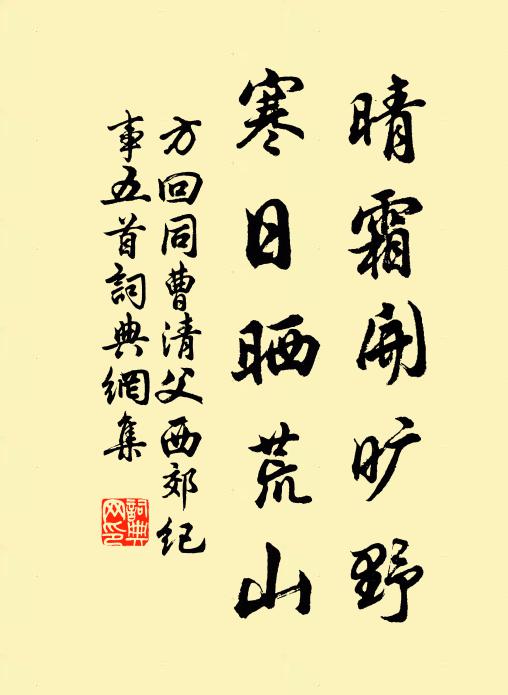 晴霜開旷野
寒日晒荒山
方回同曹清父西郊纪
事五首詞典網集
詞典
网印